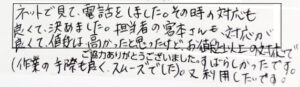 ネットで見て、電話をしました。その時の対応も
良くて、決めました。担当者の宮本さんも対応が
良くて、値段は高かったと思ったけど、お値段以上の対応で
ご協力ありがとうございました。すばらしかったです。
(作業の手際も良く、スムーズでした)。又利用したいです。